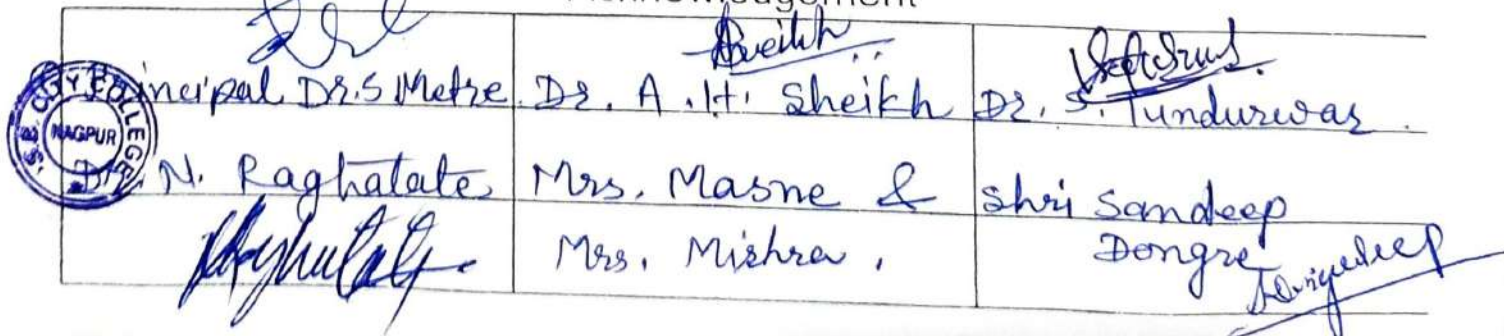 Acknowledgement
Principal Dr. S Metre Dr. A. H. Sheikh Dr. S. Tundurwar.
Dr. N. Raghatate Mrs. Masne & Shri Sandeep
Mrs. Mishra, Dongre
S. B. CITY COLLEGE
NAGPUR